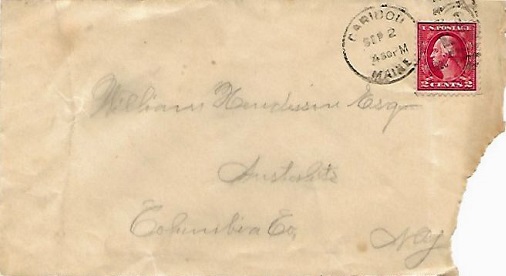 CARIBOU
SEP 2
30PM
MAINE
U.S. POSTAGE
2 CENTS 2
William Henderson Esq
Columbia Co,
N.Y